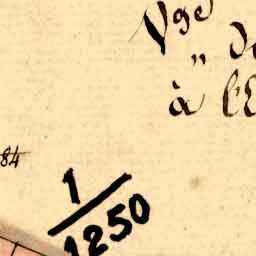 Nge
" de
à l'E
84
1/1250